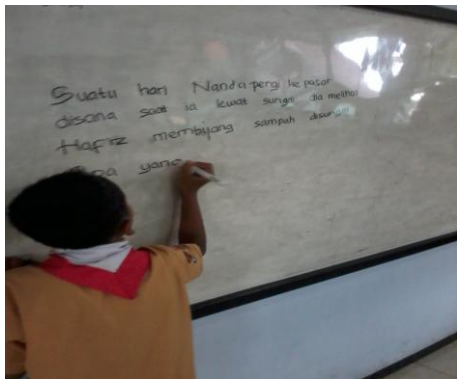 Suatu hari Nanda pergi ke pasar
disana saat ia lewat sungai dia melihat
Hafiz membuang sampah disungai
Apa yang